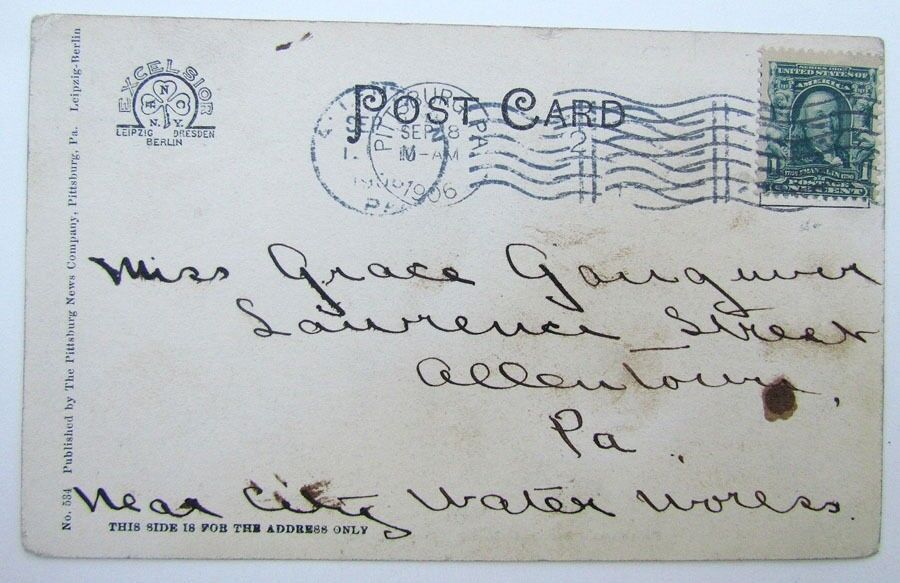 No. 534 Published by The Pittsburg News Company, Pittsburg, Pa. Leipzig-Berlin
EXCELSIOR
A N C
N.Y.
LEIPZIG DRESDEN
BERLIN
POST CARD
PITTSBURG, PA.
SEP 28
10-AM
1906
2
SERIES 1902
UNITED STATES OF
AMERICA
POSTAGE
ONE CENT
Miss Grace
Lawrence Street
Allentown,
Pa.
Near City Water Works.
THIS SIDE IS FOR THE ADDRESS ONLY